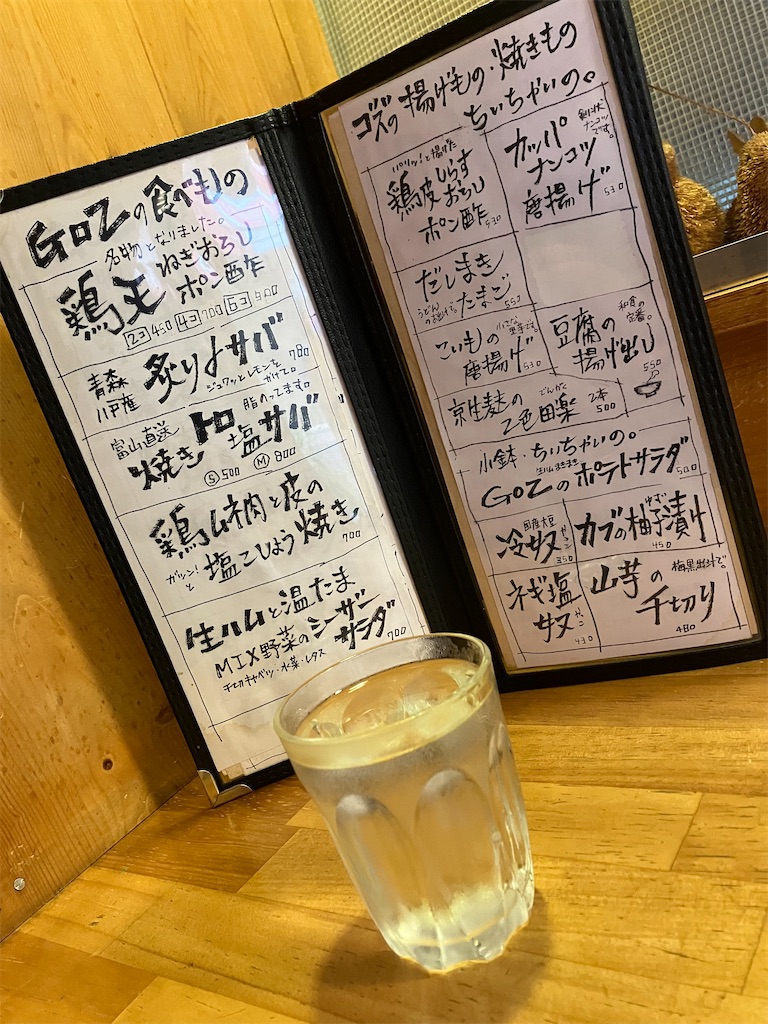 GOZの食べもの
名物となりました。
鶏天 ねぎおろし
ポン酢
2コ 450 4コ 700 6コ 900
青森
八戸産
炙り〆サバ 780
ジュワッとレモンを
かけて。
富山直送
脂のってます。
焼きトロ塩サバ
Ⓢ500 Ⓜ800
鶏ムネ肉と皮の
ガツン!と
塩こしょう焼き 700
生ハムと温たま
MIX野菜のシーザー
サラダ 700
千切キャベツ・水菜・レタス
ゴズの揚げもの・焼きもの
ちいちゃいの。
パリッ!と揚げた
鶏皮しらす
おろし
ポン酢 530
ナンコツ
です。
カッパ
ナンコツ
唐揚げ 530
だしまき
たまご 550
こいもの
唐揚げ 530
和食の
定番。
豆腐の
揚げ出し
550
京生麩の
でんがく
2色田楽 2本
500
小鉢・ちいちゃいの。
生ハムまきまき
GOZのポテトサラダ
500
国産大豆
冷奴 やっこ
350
ゆず
カブの柚子漬け
450
ネギ塩
奴 やっこ
430
山芋の
梅黒出汁で。
千切り
480